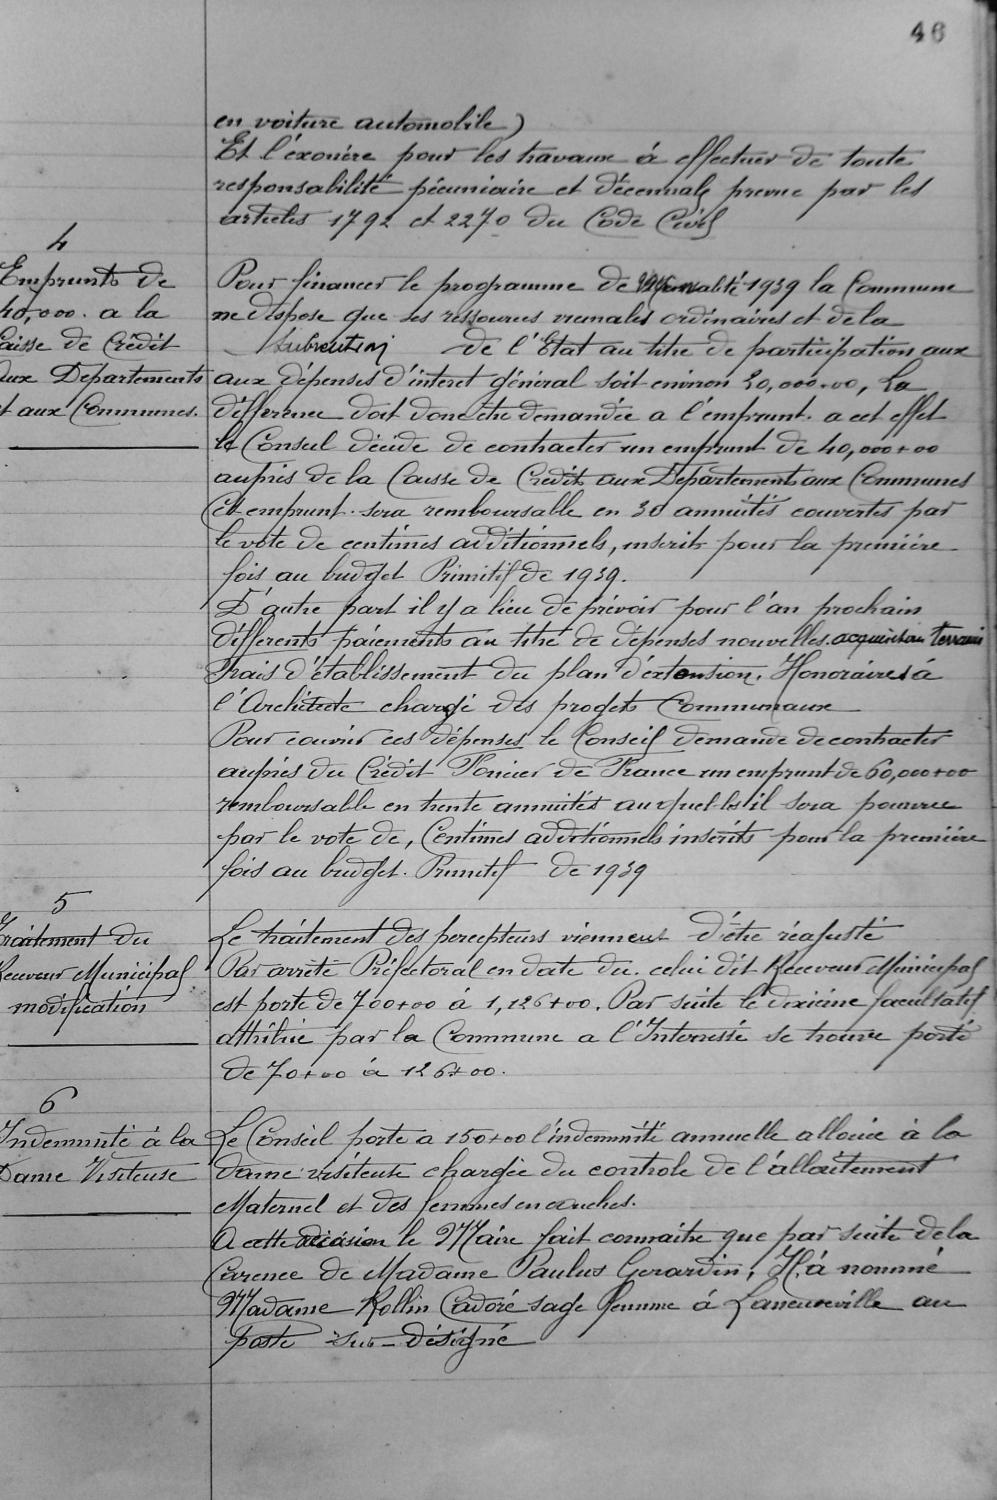 46
en voiture automobile)
Et l'éxonère pour les travaux à effectuer de toute
responsabilité pécuniaire et décennale prevue par les
articles 1792 et 2270 du Code Civil
4
Emprunts de
40,000. a la
Caisse de Crédit
aux Departements
et aux Communes.
Pour financer le programme de 1939 la Commune
ne dispose que ses ressources vicinales ordinaires et de la
Subvention de l'Etat au titre de participation aux
aux dépenses d'interet général soit environ 20,000+00, La
différence doit donc etre demandée a l'emprunt. a cet effet
le Conseil décide de contracter un emprunt de 40,000+00
auprès de la Caisse de Credit aux Departements aux Communes
Cet emprunt. sera remboursable en 30 annuités couvertes par
le vote de centimes additionnels, inscrits pour la première
fois au budget Primitif de 1939.
D'autre part il y a lieu de prévoir pour l'an prochain
differents paiements au titre de dépenses nouvelles. acquisition terrain
Frais d'établissement du plan d'extension, Honoraires à
l'Architecte chargé des progets Communaux
Pour couvrir ces dépenses le Conseil demande de contracter
auprès du Crédit Foncier de France un emprunt de 60,000+00
remboursable en trente annuités auxquelles il sera pourvu
par le vote de, Centimes additionnels inscrits pour la première
fois au budget. Primitif de 1939
5
Traitement du
Receveur Municipal
modification
Le traitement des percepteurs viennent d'être réajusté
Par arrêté Préfectoral en date du. celui dit Receveur Municipal
est porte de 700+00 à 1,126+00. Par suite le dixième facultatif
attribué par la Commune a l'Interessé se trouve porté
de 70+00 à 126+00.
6
Indemnité à la
Dame Visiteuse
Le Conseil porte a 150+00 l'indemnité annuelle allouée à la
Dame visiteuse chargée du controle de l'allaitement
Maternel et des femmes en couches.
A cette occasion le Maire fait connaitre que par suite de la
Carence de Madame Paulus Gerardin, Il à nommé
Madame Rollin Cadoré sage femme à Laneuveville au
poste sus-désigné